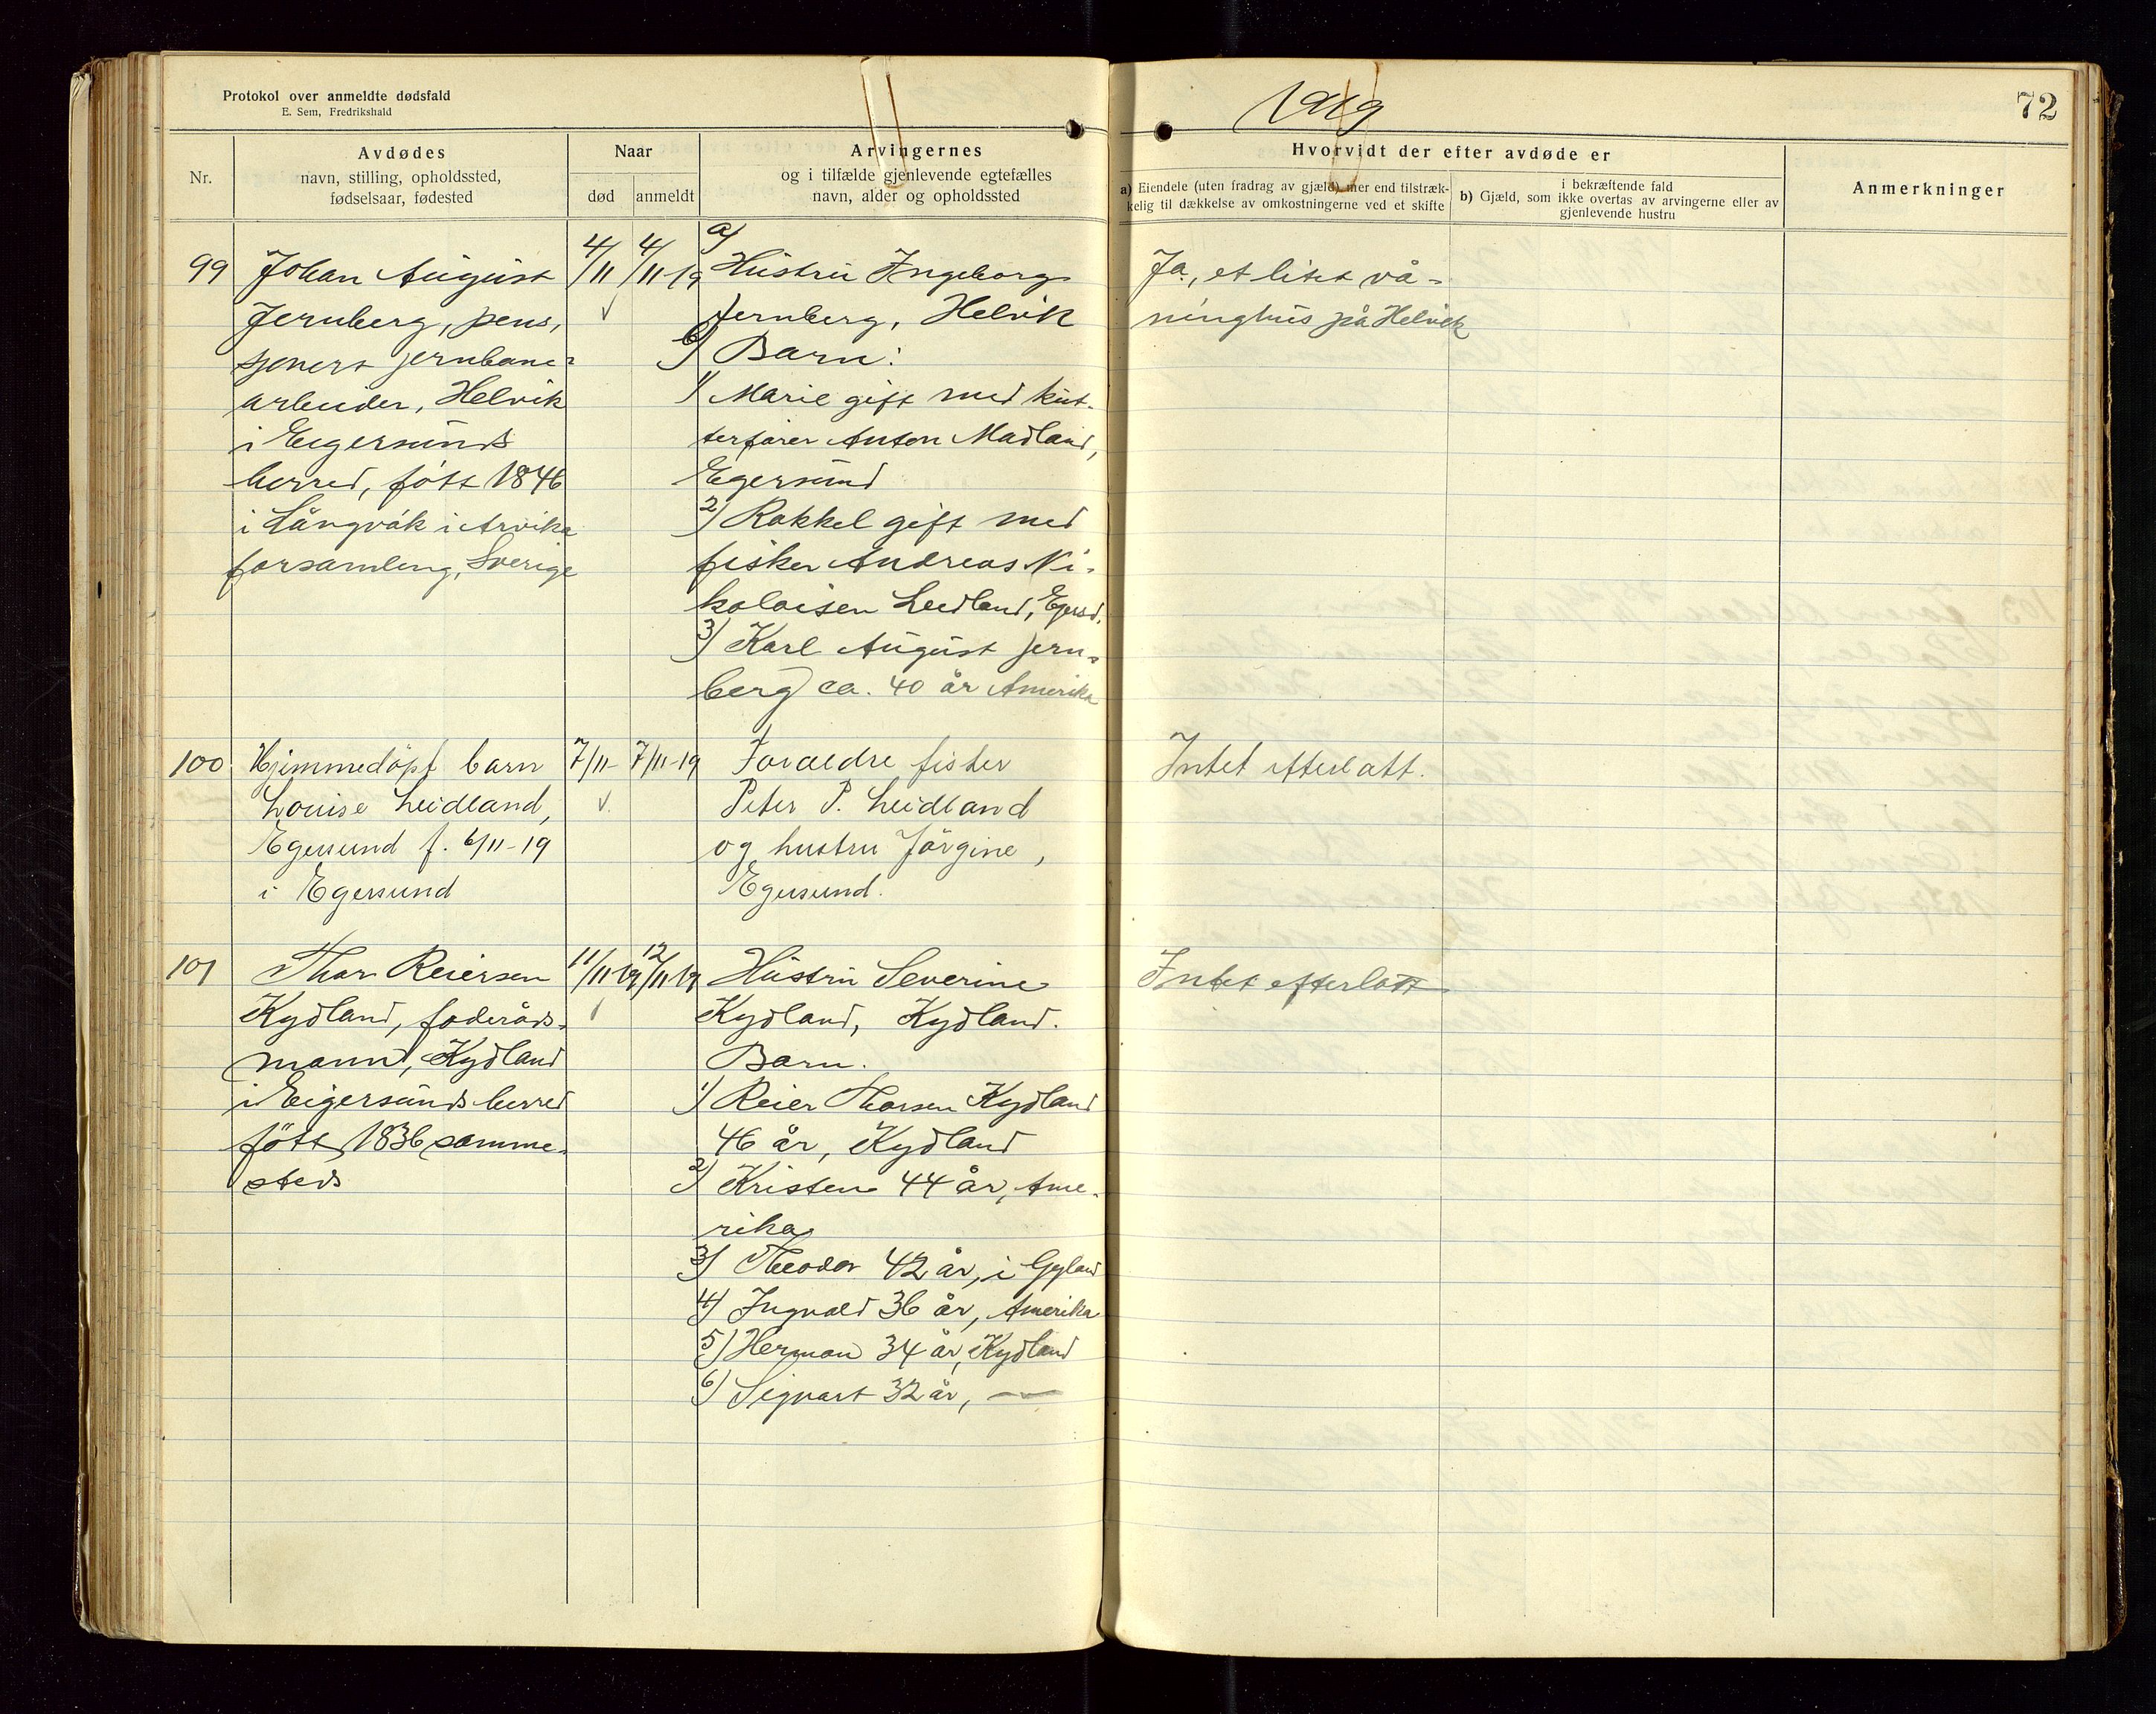 Protokol over anmeldte dødsfald
E. Sem, Fredrikshald
1919
72
Nr.
Avdødes
navn, stilling, opholdssted,
fødselsaar, fødested
Naar
død
anmeldt
Arvingernes
og i tilfælde gjenlevende egtefælles
navn, alder og opholdssted
Hvorvidt der efter avdøde er
a) Eiendele (uten fradrag av gjæld) mer end tilstræk-
kelig til dækkelse av omkostningerne ved et skifte
i bekræftende fald
b) Gjæld, som ikke overtas av arvingerne eller av
gjenlevende hustru
Anmerkninger
99
Johan August
Jernberg, pens,
sjonert jernbane-
arbeider, Helvik
i Eigersunds
herred, født 1846
i Långvåk i Arvika
forsamling, Sverige
4/11
4/11-19
a) Hustru Ingeborg
Jernberg, Helvik
b) Barn:
1) Marie gift med kut-
terfører Anton Madland,
Egersund
2) Rakkel gift med
fisker Andreas Ni-
kolaisen Leidland, Egersd.
3) Karl August Jern-
berg ca. 40 år Amerika
Ja, et litet vå-
ninghus på Helvik
100
Hjemmedöpt barn
Louise Leidland,
Egersund f. 6/11-19
i Egersund
7/11-
7/11-19
Foraeldre fisker
Peter P. Leidland
og hustru Jörgine,
Egersund.
Intet efterlatt.
101
Thor Reiersen
Kydland, foderåds-
mann, Kydland
i Eigersunds herred
född 1836 samme-
steds
11/11-19
12/11-19
Hustru Severine
Kydland, Kydland.
Barn.
1) Reier Thorsen Kydland
46 år, Kydland
2) Kristen 44 år, Ame-
rika
3) Theodor 42 år, i Gyland
4) Ingvald 36 år, Amerika
5) Herman 34 år, Kydland
6) Sigvart 32 år, —
Intet efterlatt